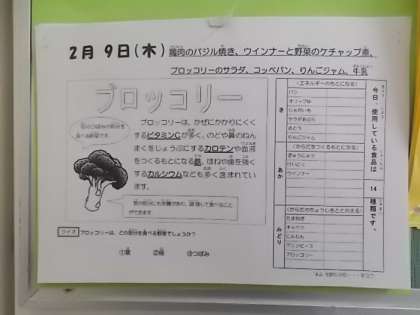 2月 9日(木) 鶏肉のバジル焼き、ウインナーと野菜のケチャップ煮、
ブロッコリーのサラダ、コッペパン、りんごジャム、牛乳
ブロッコリー
ブロッコリーは、かぜにかかりにくく
するビタミンCが多く、のどや鼻のねん
まくをじょうぶにするカロテンや
をつくるもとになる 、ほねや歯を強く
するカルシウムなども多く含まれてい
ます。
クイズ ブロッコリーは、どの部分を食べる野菜でしょうか?
①葉 ③つぼみ
今日、使用している食品は
14
種類です。
き
(エネルギーのもとになる)
パン
オリーブ油
じゃがいも
さとう
りんごジャム
あか
(からだをつくるもとになる)
ぎゅうにゅう
けいにく
ウインナー
みどり
(からだのちょうしをととのえる)
たまねぎ
キャベツ
にんじん
ブロッコリー